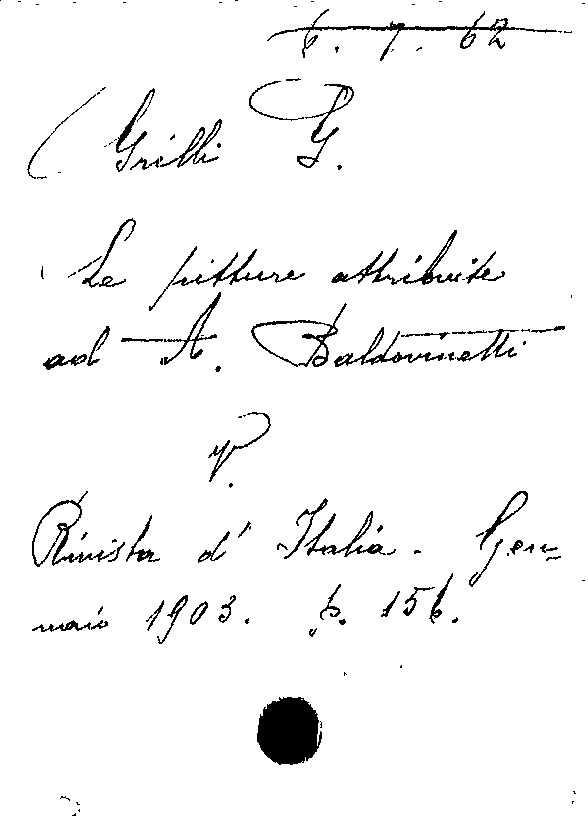 6. 7. 62
Grilli G.
Le pitture attribuite
ad A. Baldovinetti
V.
Rivista d' Italia. Gen=
naio 1903. p. 156.